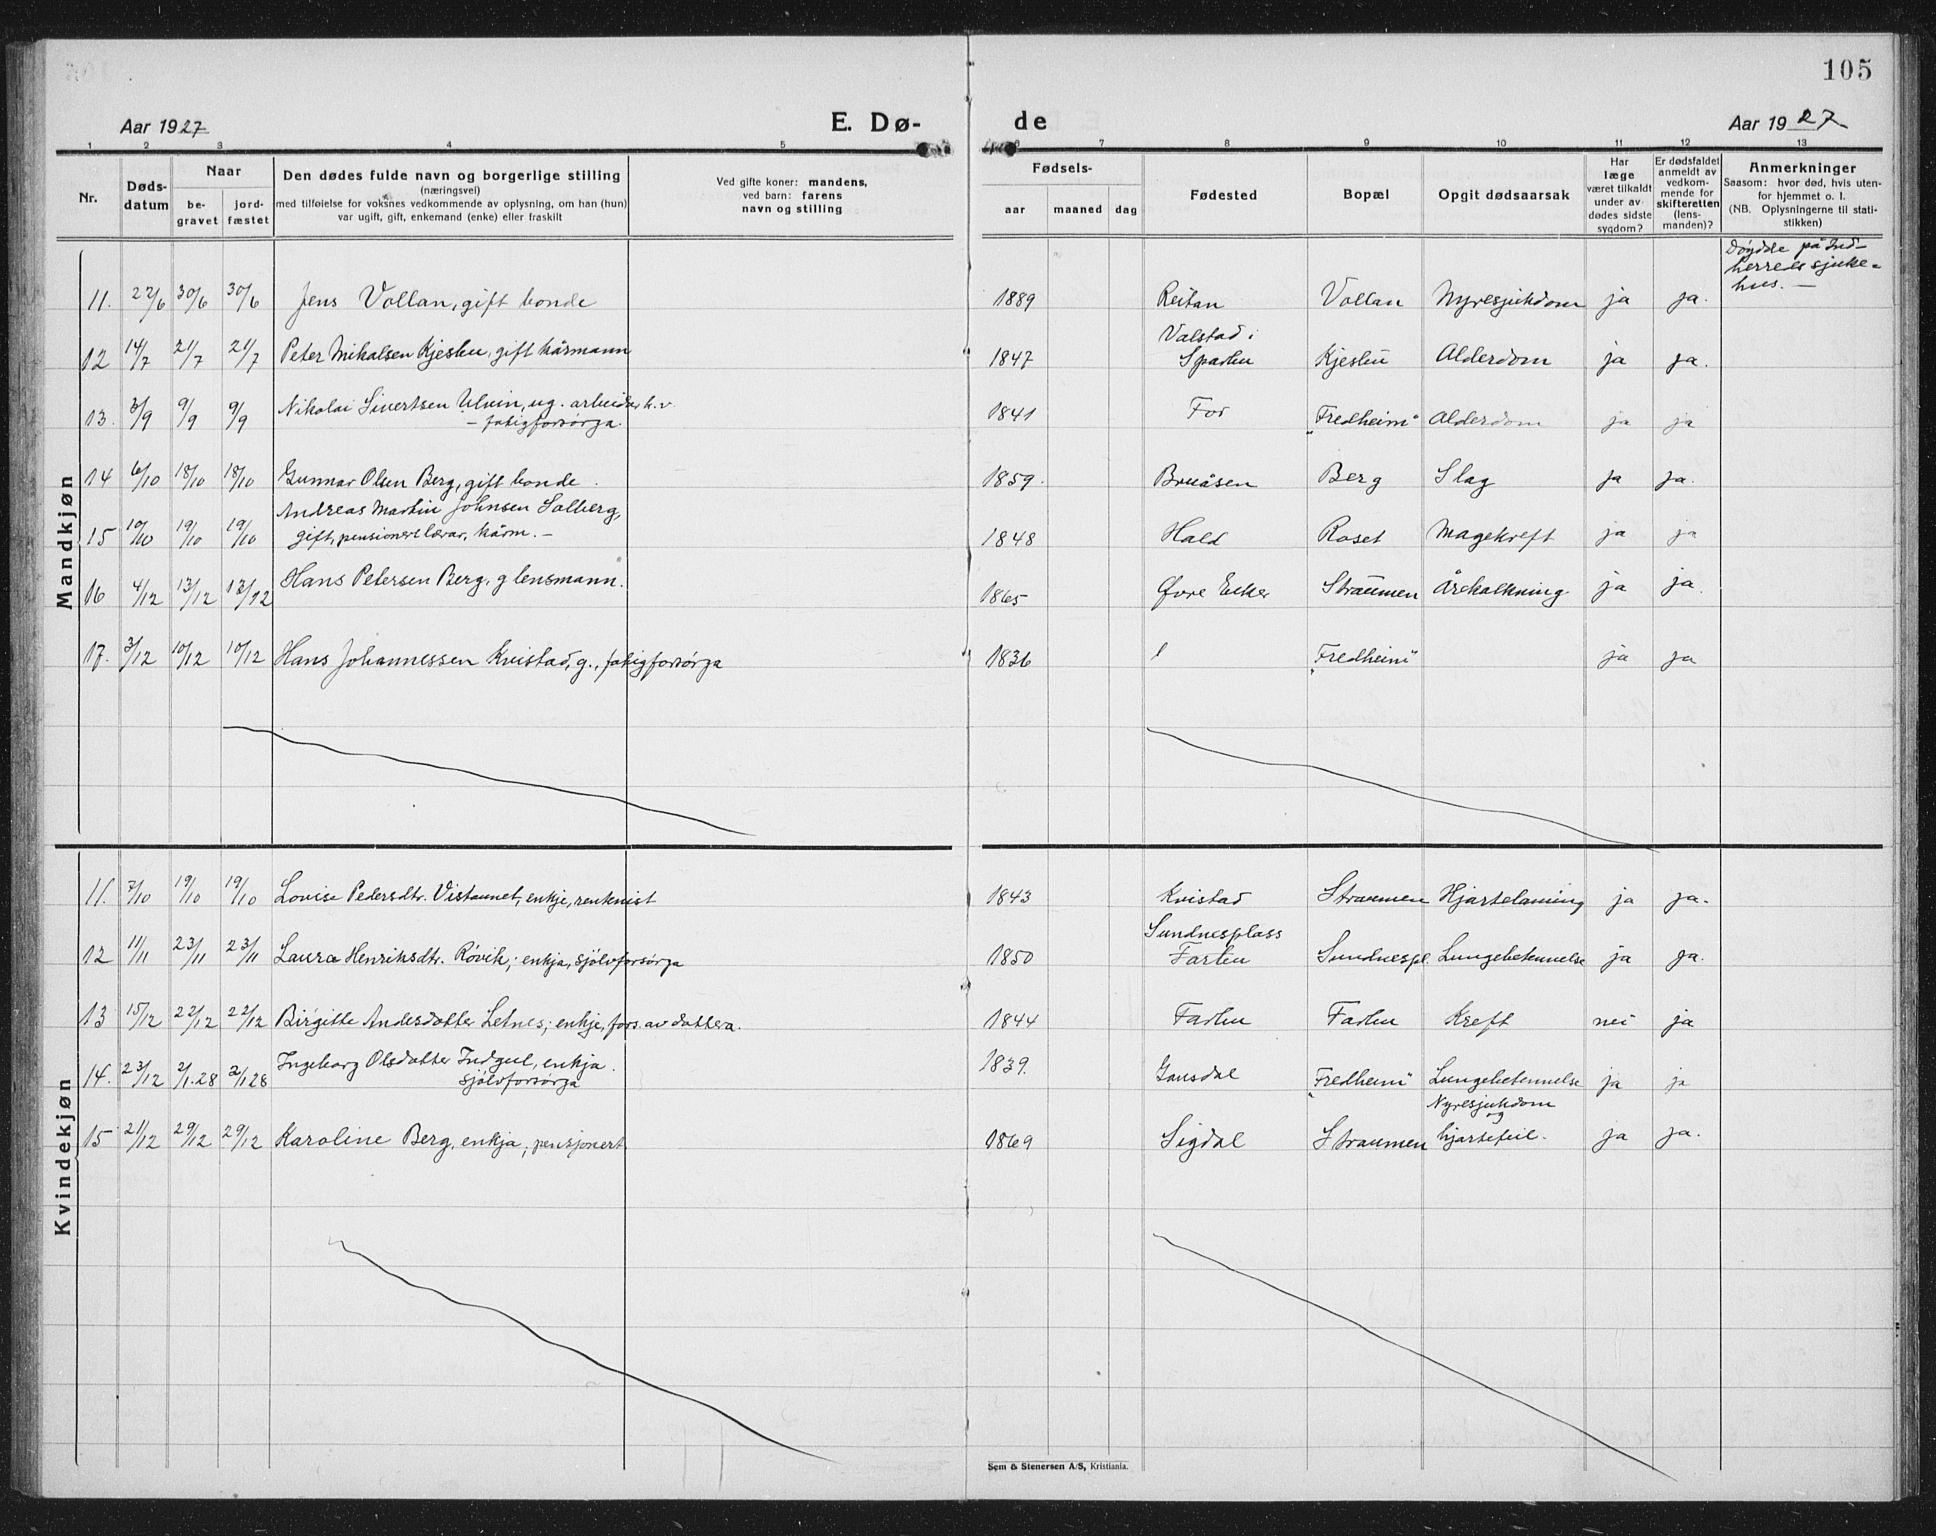 105
Aar 1927
E. Dø-
de
Aar 1927
1 2 3 4 5 6 7 8 9 10 11 12 13
Nr.
Døds-
datum
Naar
be-
gravet
jord-
fæstet
Den dødes fulde navn og borgerlige stilling
(næringsvei)
med tilføielse for voksnes vedkommende av oplysning, om han (hun)
var ugift, gift, enkemand (enke) eller fraskilt
Ved gifte koner: mandens,
ved barn: farens
navn og stilling
Fødsels-
aar maaned dag
Fødested
Bopæl
Opgit dødsaarsak
Har
læge
været tilkaldt
under av-
dødes sidste
sygdom?
Er dødsfaldet
anmeldt av
vedkom-
mende for
skifteretten
(lens-
manden)?
Anmerkninger
Saasom: hvor død, hvis uten-
for hjemmet o. l.
(NB. Oplysningerne til stati-
stikken)
Mandkjøn
Døydde på Ind-
herreds sjuke-
hus. —
11. 22/6 30/6 30/6 Jens Vollan, gift bonde 1889 Reitan Vollan Nyresjukdom ja ja.
Valstad i
12 14/7 21/7 21/7 Peter Mikalsen Kjeslu, gift kårmann 1847 Sparbu Kjeslu Alderdom ja ja.
13. 3/9 9/9 9/9 Nikolai Sivertsen Ulvin, ug. arbeider h.v. 1841 For "Fredheim" Alderdom ja ja
— fatigforsørga.
14 6/10 18/10 18/10 Gunnar Olsen Berg, gift bonde. 1859. Bruåsen Berg Slag ja ja.
Andreas Martin Johnsen Salberg,
15 10/10 19/10 19/10 gift, pensionert lærar, kårm. — 1848 Hald Roset Magekreft ja ja
16 4/12 13/12 13/12 Hans Petersen Berg, g lensmann. 1865 Øvre Eiker Straumen Årekalkning ja ja.
17. 3/12 10/12 10/12 Hans Johannessen Kvistad, g., fatigforsørga 1836 "Fredheim" ja ja
Kvindekjøn
11. 7/10 19/10 19/10 Lovise Pedersdtr. Vistaunet, enkje, rentenist 1843 Kvistad Straumen Hjartelaming ja ja.
Sundnesplass
12 11/11 23/11 23/11 Laura Henriksdtr. Røvik; enkja, sjølvforsørga 1850 Sundnespl. Lungebetennelse ja ja.
13 15/12 22/12 22/12 Birgitte Andersdotter Letnes; enkje, fors. av dottera. 1844 Kreft nei ja
14. 23/12 2/1.28 2/1 28 Ingeborg Olsdotter Indgul, enkja. 1839. Gausdal "Fredheim" Lungebetennelse ja ja
sjølvforsørga
Nyresjukdom
og
15 21/12 29/12 29/12 Karoline Berg, enkja; pensjonert 1869 Sigdal Straumen hjartefeil. ja ja.
Sem & Stenersen A/S, Kristiania.